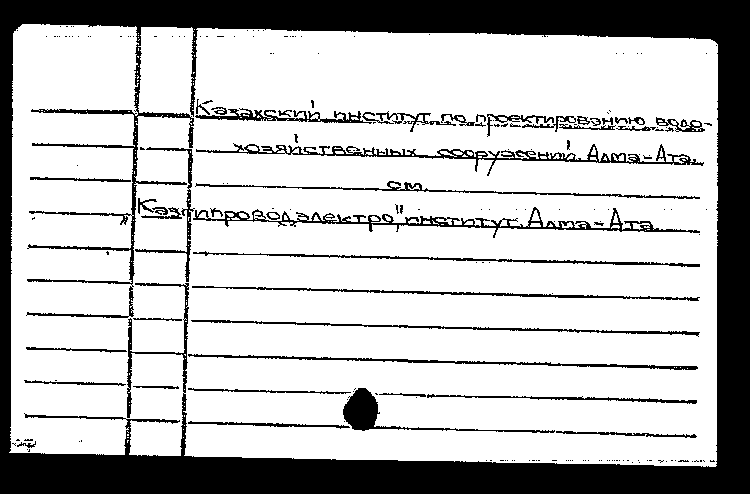 Казахский институт по проектированию водо-
хозяйственных сооружений. Алма-Ата.
см.
"Казгипроводэлектро", институт. Алма-Ата.